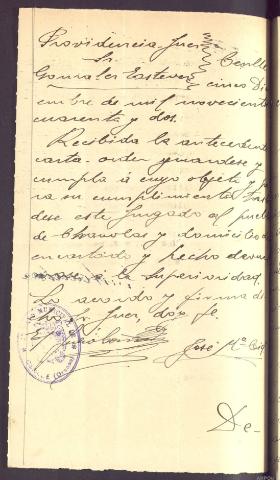 Providencia Juez
Sr.
Gonzalez Esteves cinco Di
embre de mil novecientos
cuarenta y dos.
Recibida la antecedente
carta-orden guardese y
cumpla á cuyo objeto y pa
ra su cumplimiento tras
dese este Juzgado al pueblo
de y domicilio
encartado y hecho devuel
a la Superioridad.
Lo acordo y firma di
cho Sr. Juez, doy fe.
José Mª
De-